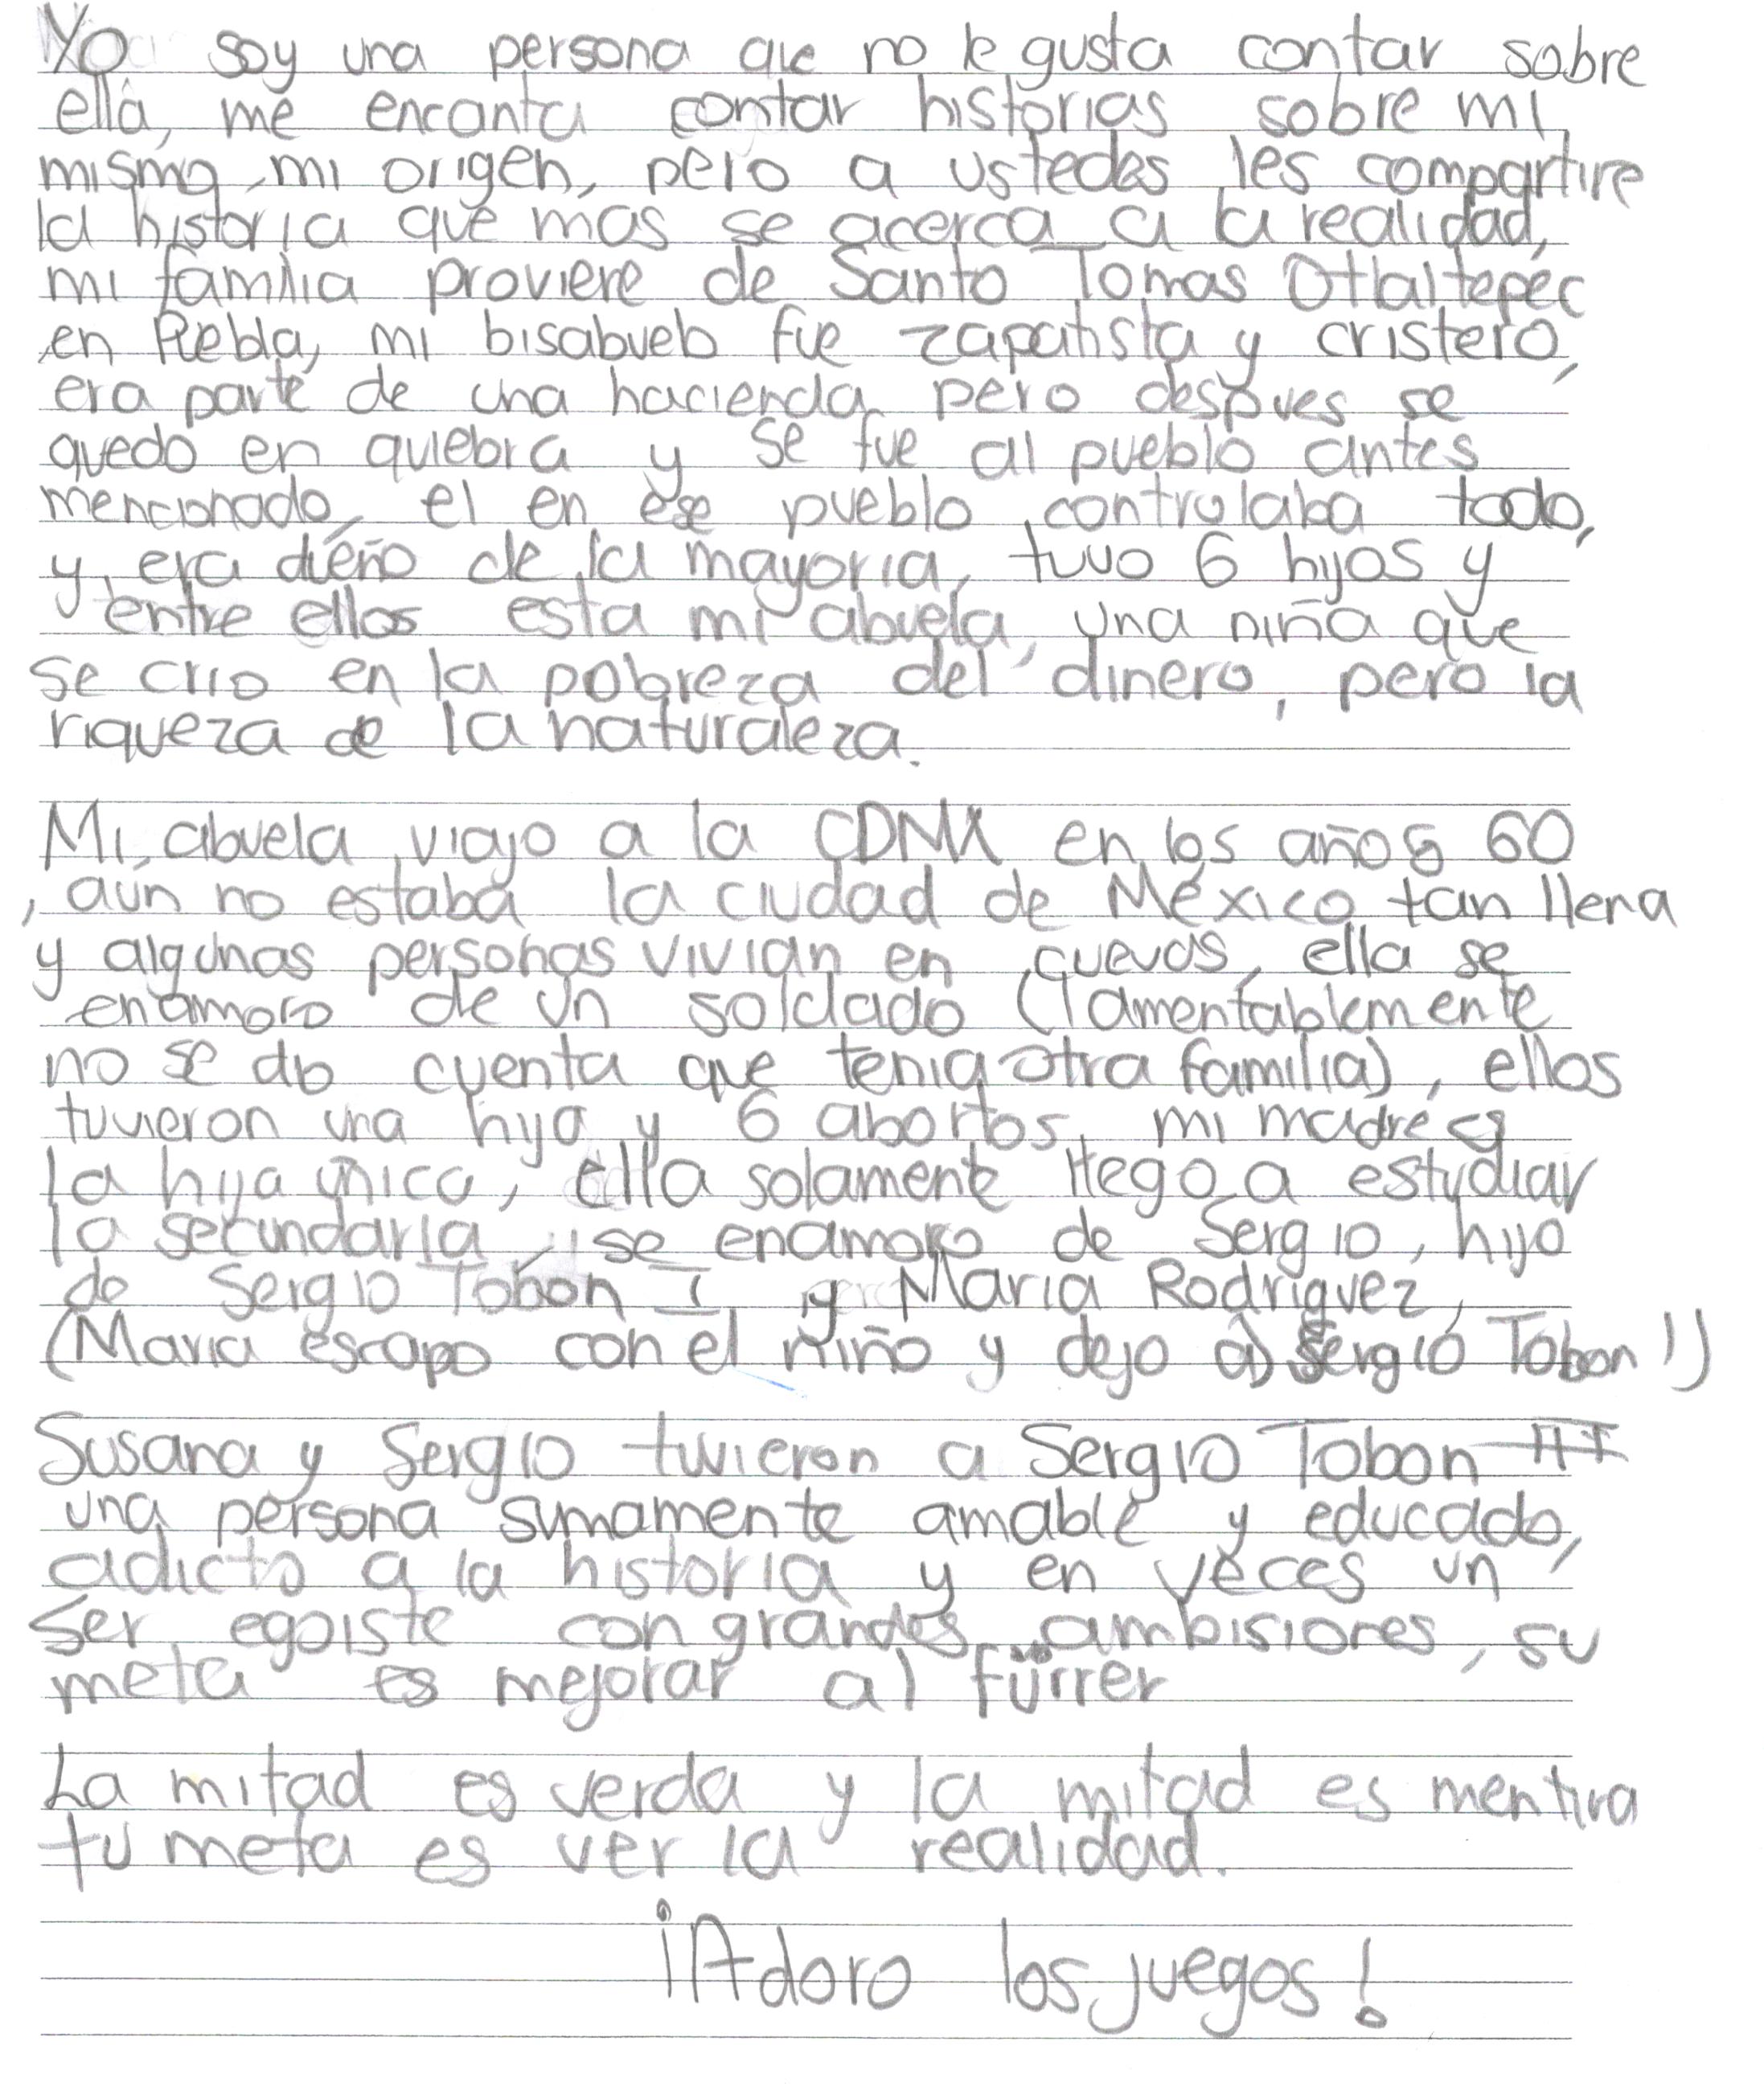 Yo soy una persona que no le gusta contar sobre
ella, me encanta contar historias sobre mi
mismo, mi origen, pero a ustedes les compartire
la historia que mas se acerca a la realidad,
mi familia proviene de Santo Tomas Otlaltepec
en Puebla, mi bisabuelo fue zapatista y cristero,
era parte de una hacienda pero despues se
quedo en quiebra y se fue al pueblo antes
mencionado, el en ese pueblo controlaba todo,
y era dueño de la mayoria, tuvo 6 hijos y
entre ellos esta mi abuela, una niña que
se crio en la pobreza del dinero, pero la
riqueza de la naturaleza.
Mi abuela viajo a la CDMX en los años 60
, aún no estaba la ciudad de México tan llena
y algunas personas vivian en cuevas, ella se
enamoro de un soldado (lamentablemente
no se dio cuenta que tenia otra familia), ellos
tuvieron una hija y 6 abortos, mi madre es
la hija única, ella solamente llego a estudiar
la secundaria, se enamoro de Sergio, hijo
de Sergio Tobon I y Maria Rodriguez,
(Maria escapo con el niño y dejo a Sergio Tobon I)
Susana y Sergio tuvieron a Sergio Tobon III
una persona sumamente amable y educado,
adicto a la historia y en veces un
ser egoiste con grandes ambisiones, su
meta es mejorar al fürrer
La mitad es verda y la mitad es mentira
tu meta es ver la realidad.
¡Adoro los juegos!